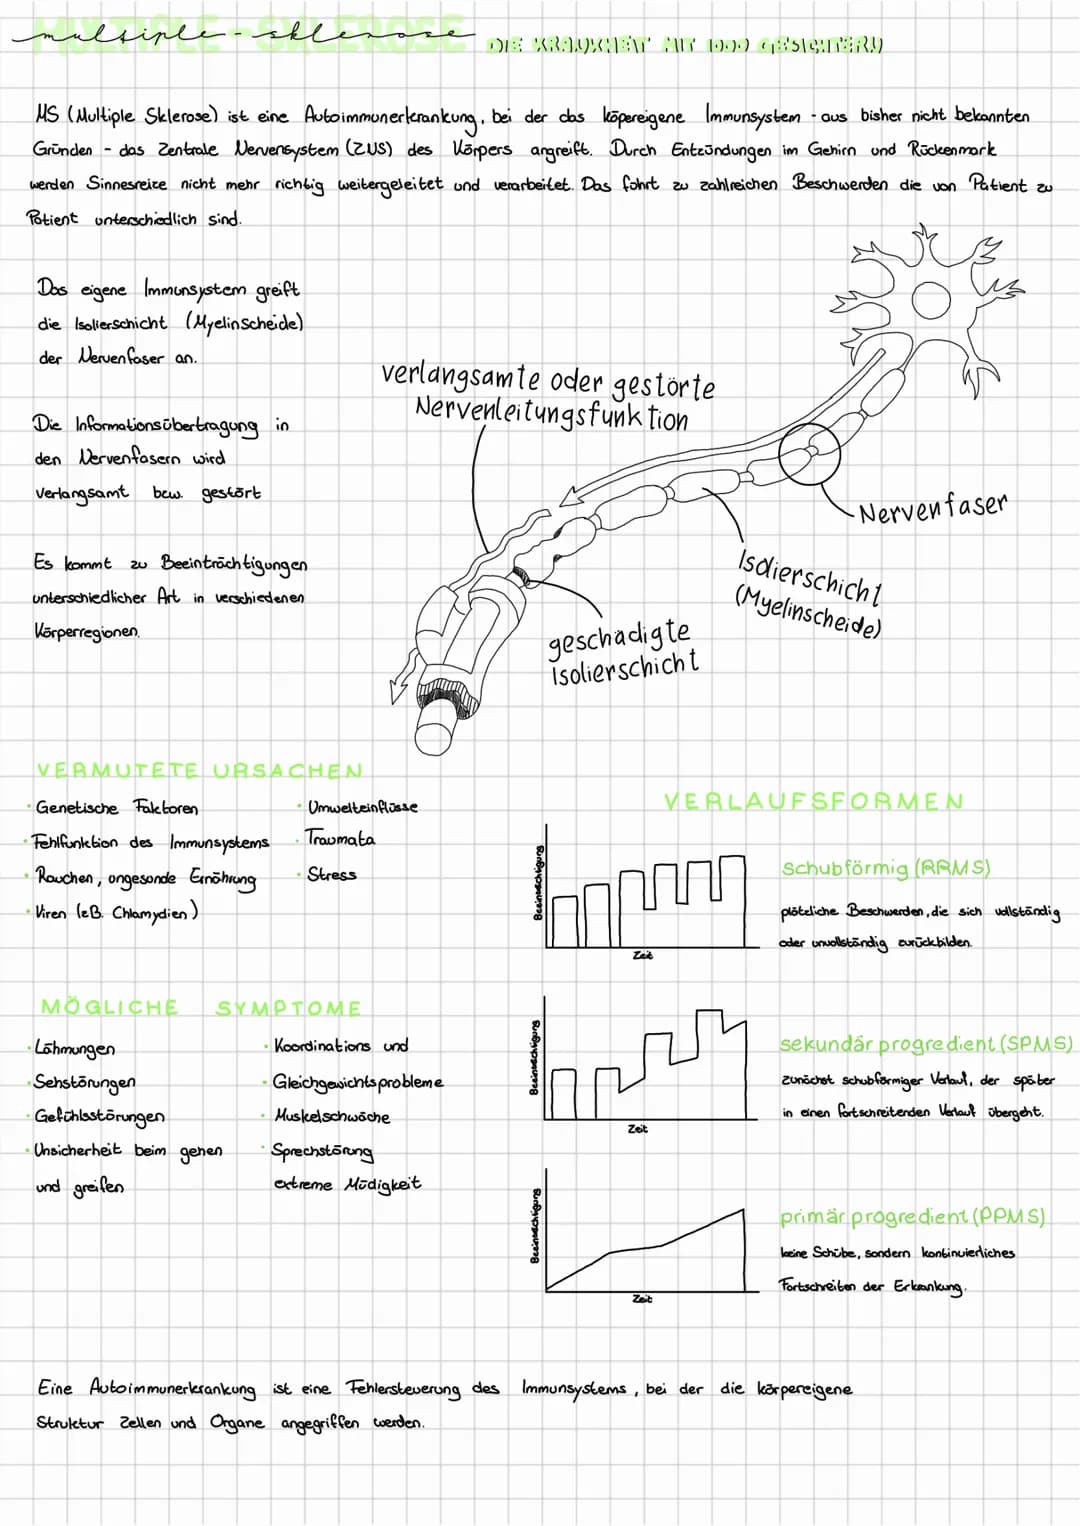 multiple-sklerose
DIE KRANKHEIT MIT 1000 GESICHTERN
MS (Multiple Sklerose) ist eine Autoimmunerkrankung, bei der das köpereigene Immunsystem - aus bisher nicht bekannten
Gründen - das Zentrale Nervensystem (ZNS) des Körpers angreift. Durch Entzündungen im Gehirn und Rückenmark
werden Sinnesreize nicht mehr richtig weitergeleitet und verarbeitet. Das führt zu zahlreichen Beschwerden die von Patient zu
Patient unterschiedlich sind.
Das eigene Immunsystem greift
die Isolierschicht (Myelinscheide)
der Nervenfaser an.
Die Informationsübertragung in
den Nervenfasern wird
verlangsamt bzw. gestört
Es kommt zu Beeinträchtigungen
unterschiedlicher Art in verschiedenen
Körperregionen.
verlangsamte oder gestörte
Nervenleitungsfunktion
Nervenfaser
Isolierschicht
(Myelinscheide)
geschädigte
Isolierschicht
VERMUTETE URSACHEN
· Genetische Faktoren
· Fehlfunktion des Immunsystems
· Rauchen, ungesunde Ernährung
· Viren (z.B. Chlamydien)
· Umwelteinflüsse
· Traumata
· Stress
MÖGLICHE SYMPTOME
· Lähmungen
· Sehstörungen
· Gefühlsstörungen
· Unsicherheit beim gehen
und greifen
· Koordinations und
· Gleichgewichtsprobleme
· Muskelschwäche
· Sprechstörung
extreme Müdigkeit
VERLAUFSFORMEN
Beeinträchtigung
Zeit
schubförmig (RRMS)
plötzliche Beschwerden, die sich vollständig
oder unvollständig zurückbilden.
Beeinträchtigung
Zeit
sekundär progredient (SPMS)
zunächst schubförmiger Verlauf, der später
in einen fortschreitenden Verlauf übergeht.
Beeinträchtigung
Zeit
primär progredient (PPMS)
keine Schübe, sondern kontinuierliches
Fortschreiten der Erkrankung.
Eine Autoimmunerkrankung ist eine Fehlersteuerung des Immunsystems, bei der die körpereigene
Struktur Zellen und Organe angegriffen werden.